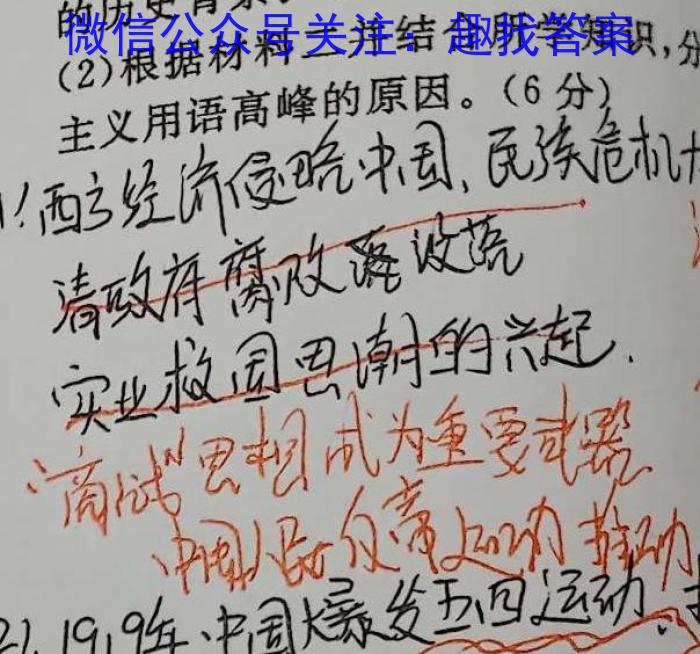 的历史背景。
微信公众号关注：趣找答案
(2)根据材料三并结合所学知识，分
主义用语高峰的原因。(6分)
1!西方经济侵略中国，民族危机
清政府腐败没落
实业救国思潮的兴起.
"商战"思想成为重要武器
中国人民反帝运动推动
2). 1919年.中国爆发五四运动.